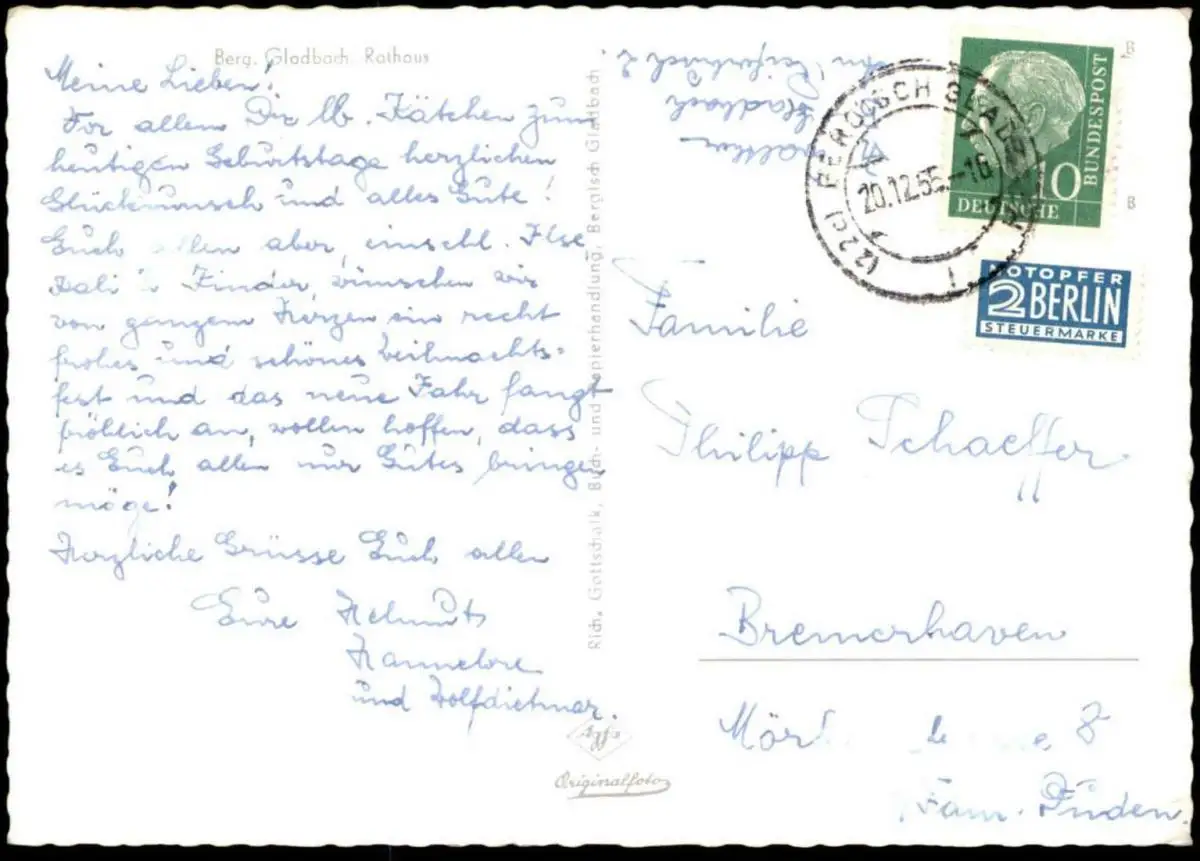 Berg. Gladbach. Rathaus
Meine Lieben!
Vor allem Dir lb. Kätchen zum
heutigen Geburtstage herzlichen
Glückwunsch und alles Gute!
Euch allen aber, einschl. Ilse
Kinder, wünschen wir
von ganzem Herzen ein recht
frohes und schönes Weihnachts-
fest und das neue Jahr fangt
fröhlich an, wollen hoffen, dass
es Euch allen nur Gutes bringen
möge!
Herzliche Grüsse Euch allen
Eure Helmuts
Hannelore
und Wolfdietmar.
Rich. Gottschalk, Buch- und Papierhandlung, Bergisch Gladbach
Agfa
Originalfoto
Gladbach
(22c) BERGISCH GLADBACH
20.12.55.-16
1
10
DEUTSCHE
BUNDESPOST
B
B
NOTOPFER
2 BERLIN
STEUERMARKE
Familie
Philipp Schaeffer
Bremerhaven
8
Fam. Duden.